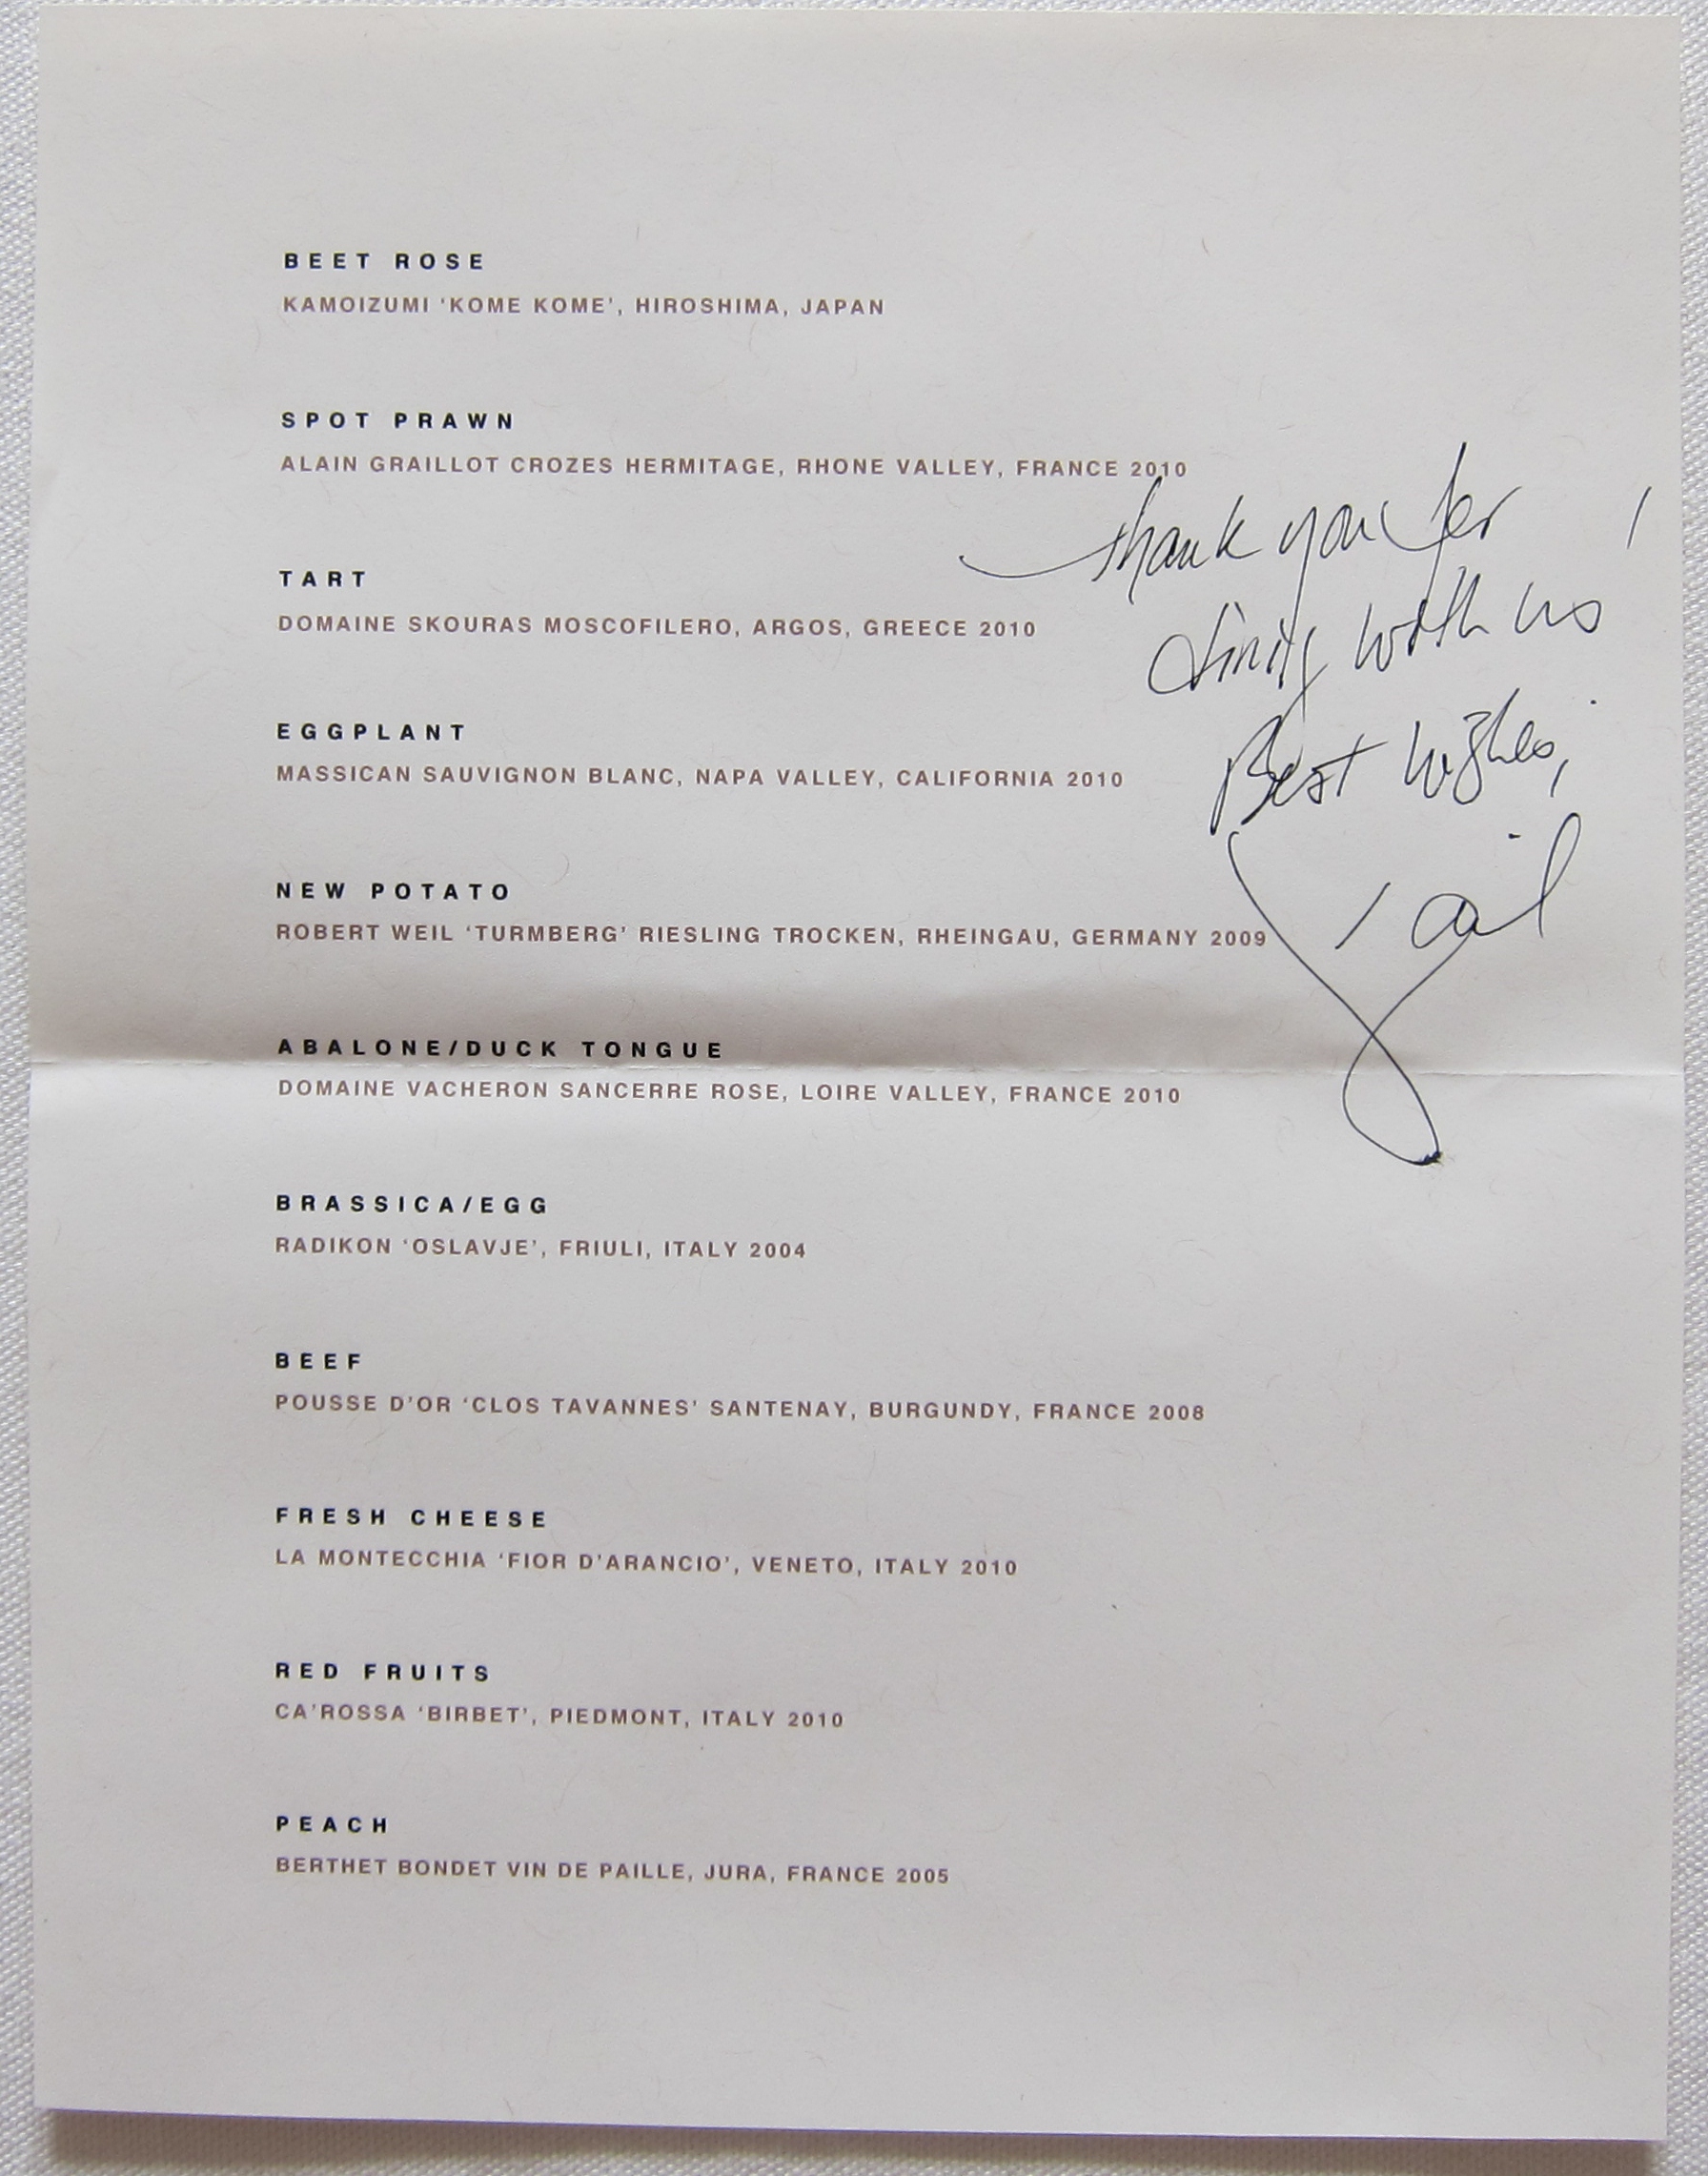 BEET ROSE
KAMOIZUMI ‘KOME KOME’, HIROSHIMA, JAPAN
SPOT PRAWN
ALAIN GRAILLOT CROZES HERMITAGE, RHONE VALLEY, FRANCE 2010
TART
DOMAINE SKOURAS MOSCOFILERO, ARGOS, GREECE 2010
EGGPLANT
MASSICAN SAUVIGNON BLANC, NAPA VALLEY, CALIFORNIA 2010
NEW POTATO
ROBERT WEIL ‘TURMBERG’ RIESLING TROCKEN, RHEINGAU, GERMANY 2009
ABALONE/DUCK TONGUE
DOMAINE VACHERON SANCERRE ROSE, LOIRE VALLEY, FRANCE 2010
BRASSICA/EGG
RADIKON ‘OSLAVJE’, FRIULI, ITALY 2004
BEEF
POUSSE D’OR ‘CLOS TAVANNES’ SANTENAY, BURGUNDY, FRANCE 2008
FRESH CHEESE
LA MONTECCHIA ‘FIOR D’ARANCIO’, VENETO, ITALY 2010
RED FRUITS
CA’ROSSA ‘BIRBET’, PIEDMONT, ITALY 2010
PEACH
BERTHET BONDET VIN DE PAILLE, JURA, FRANCE 2005
Thank you for
dining with us!
Best wishes,